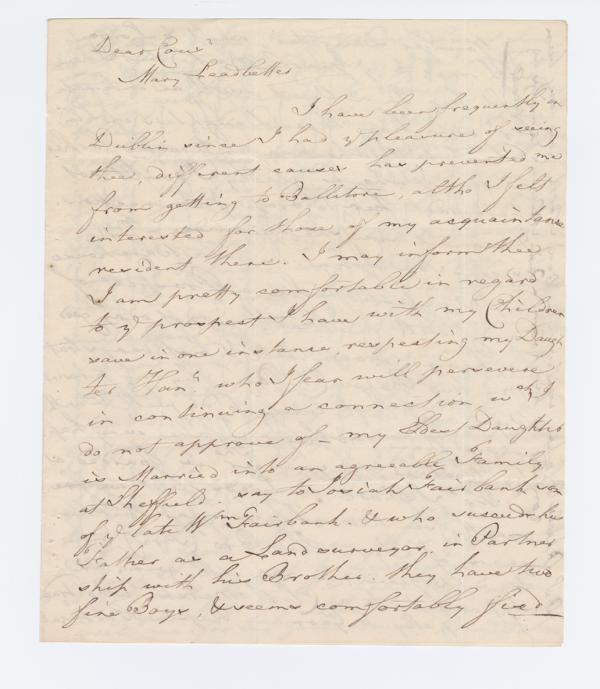 Dear Cous.n
Mary Leadbetter
I have been frequently in
Dublin since I had ye pleasure of seeing
thee, different causes has prevented me
from getting to Ballitore, altho I felt
interested for those of my acquaintance
resident there. I may inform thee
I am pretty comfortable in regard
to ye prospect I have with my Children
save in one instance, respecting my Daugh
ter Han.h who I fear will persevere
in continuing a connection wch I
do not approve of - my Eldest Daughter
is Married into an agreeable Family
at Sheffield. say to Josiah Fairbank son
of ye late Wm Fairbank. & who succeeds his
Father as a Land surveyor, in Partner
ship with his Brother. they have two
fine Boys, & seems comfortably fixed